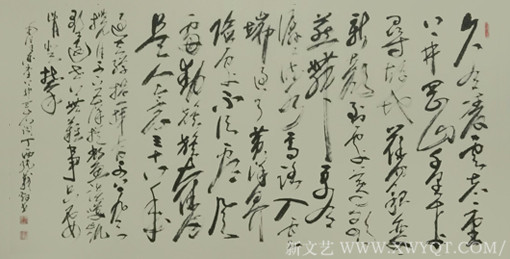 久有凌云志重
上井冈山千里来
寻故地旧貌变
新颜到处莺歌
燕舞更有潺
潺流水高路入云
端过了黄洋界
险处不须看风
雷动旌旗奋
是人寰三十八年
过去弹指一挥间可上九天
揽月可下五洋捉鳖谈笑凯
歌还世上无难事只要
肯登攀
丁酉
新文艺